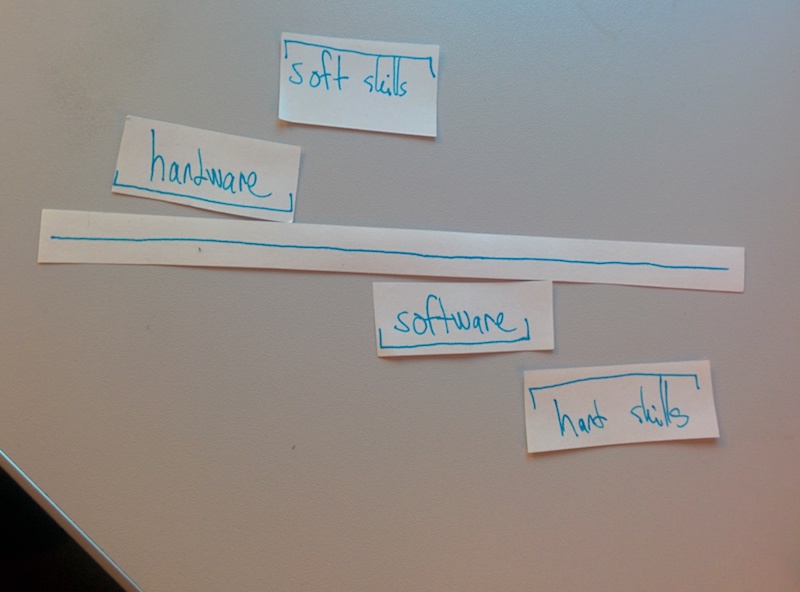 soft skills
hardware
software
hard skills